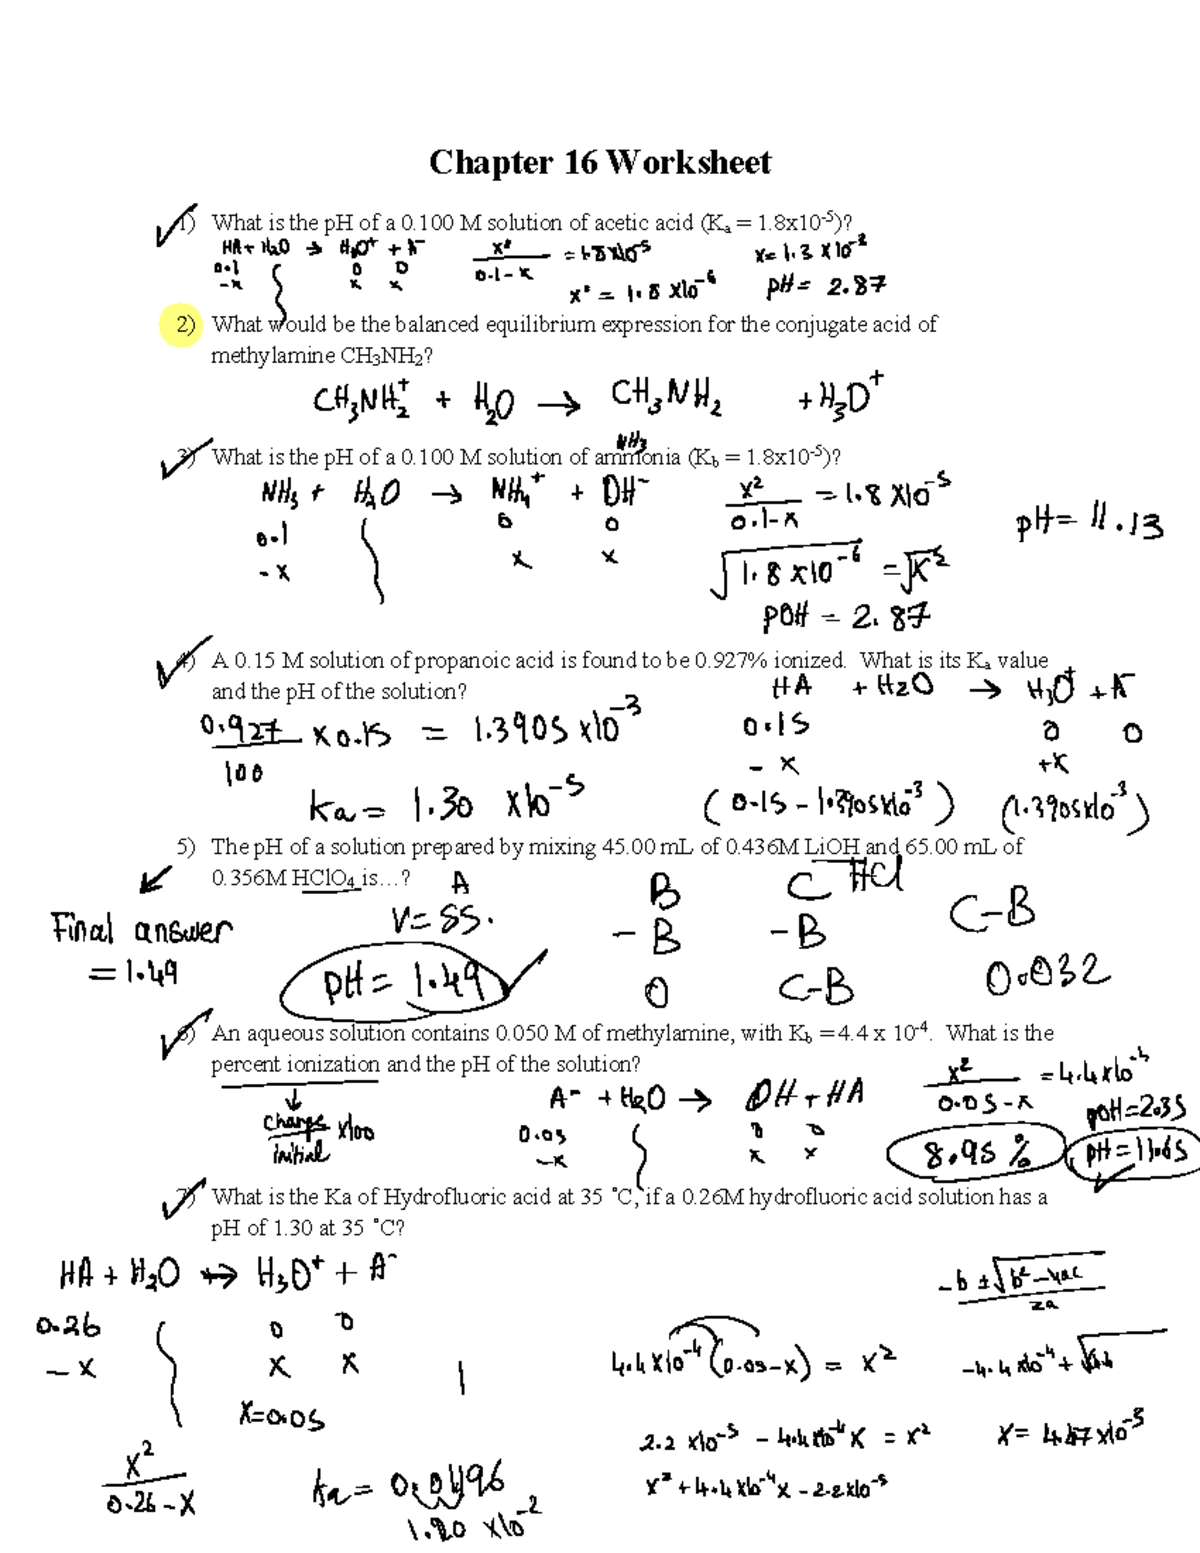 Chapter 16 Worksheet
1) What is the pH of a 0.100 M solution of acetic acid (Ka = 1.8x10-5)?
HA + H2O → H3O+ + A-
0.1 0 0
-x x x
x² / 0.1-x = 1.8x10-5
x² = 1.8 x10-6
x= 1.3 x10-2
pH = 2.87
2) What would be the balanced equilibrium expression for the conjugate acid of
methylamine CH3NH2?
CH3NH2+ + H2O → CH3NH2 + H3O+
3) What is the pH of a 0.100 M solution of ammonia (Kb = 1.8x10-5)?
NH3
NH3 + H2O → NH4+ + OH-
0.1 0 0
-x x x
x² / 0.1-x = 1.8 x10-5
√1.8 x10-6 = √x²
pOH = 2.87
pH = 11.13
4) A 0.15 M solution of propanoic acid is found to be 0.927% ionized. What is its Ka value
and the pH of the solution?
HA + H2O → H3O+ + A-
0.927 / 100 x 0.15 = 1.3905 x10-3
0.15 0 0
-x +x
Ka = 1.30 x10-5
(0.15 - 1.3905x10-3) (1.3905x10-3)
5) The pH of a solution prepared by mixing 45.00 mL of 0.436M LiOH and 65.00 mL of
0.356M HClO4 is…?
HCl
A B C
- B - B C-B
0 C-B 0.032
Final answer
= 1.49
pH = 1.49
6) An aqueous solution contains 0.050 M of methylamine, with Kb =4.4 x 10-4. What is the
percent ionization and the pH of the solution?
change / initial x100
A- + H2O → OH + HA
0.05 0 0
-x x x
x² / 0.05-x = 4.4x10-4
pOH=2.35
8.95 %
pH = 11.65
7) What is the Ka of Hydrofluoric acid at 35 ˚C, if a 0.26M hydrofluoric acid solution has a
pH of 1.30 at 35 ˚C?
HA + H2O ↔ H3O+ + A-
0.26 0 0
-x x x
x=0.05
x² / 0.26-x
Ka = 0.01196
1.20 x10-2
-b ± √b²-4ac / 2a
4.4x10-4 (0.05-x) = x²
-4.4x10-4 +
2.2 x10-5 - 4.4x10-4 x = x²
x= 4.47x10-3
x² + 4.4x10-4 x - 2.2x10-5